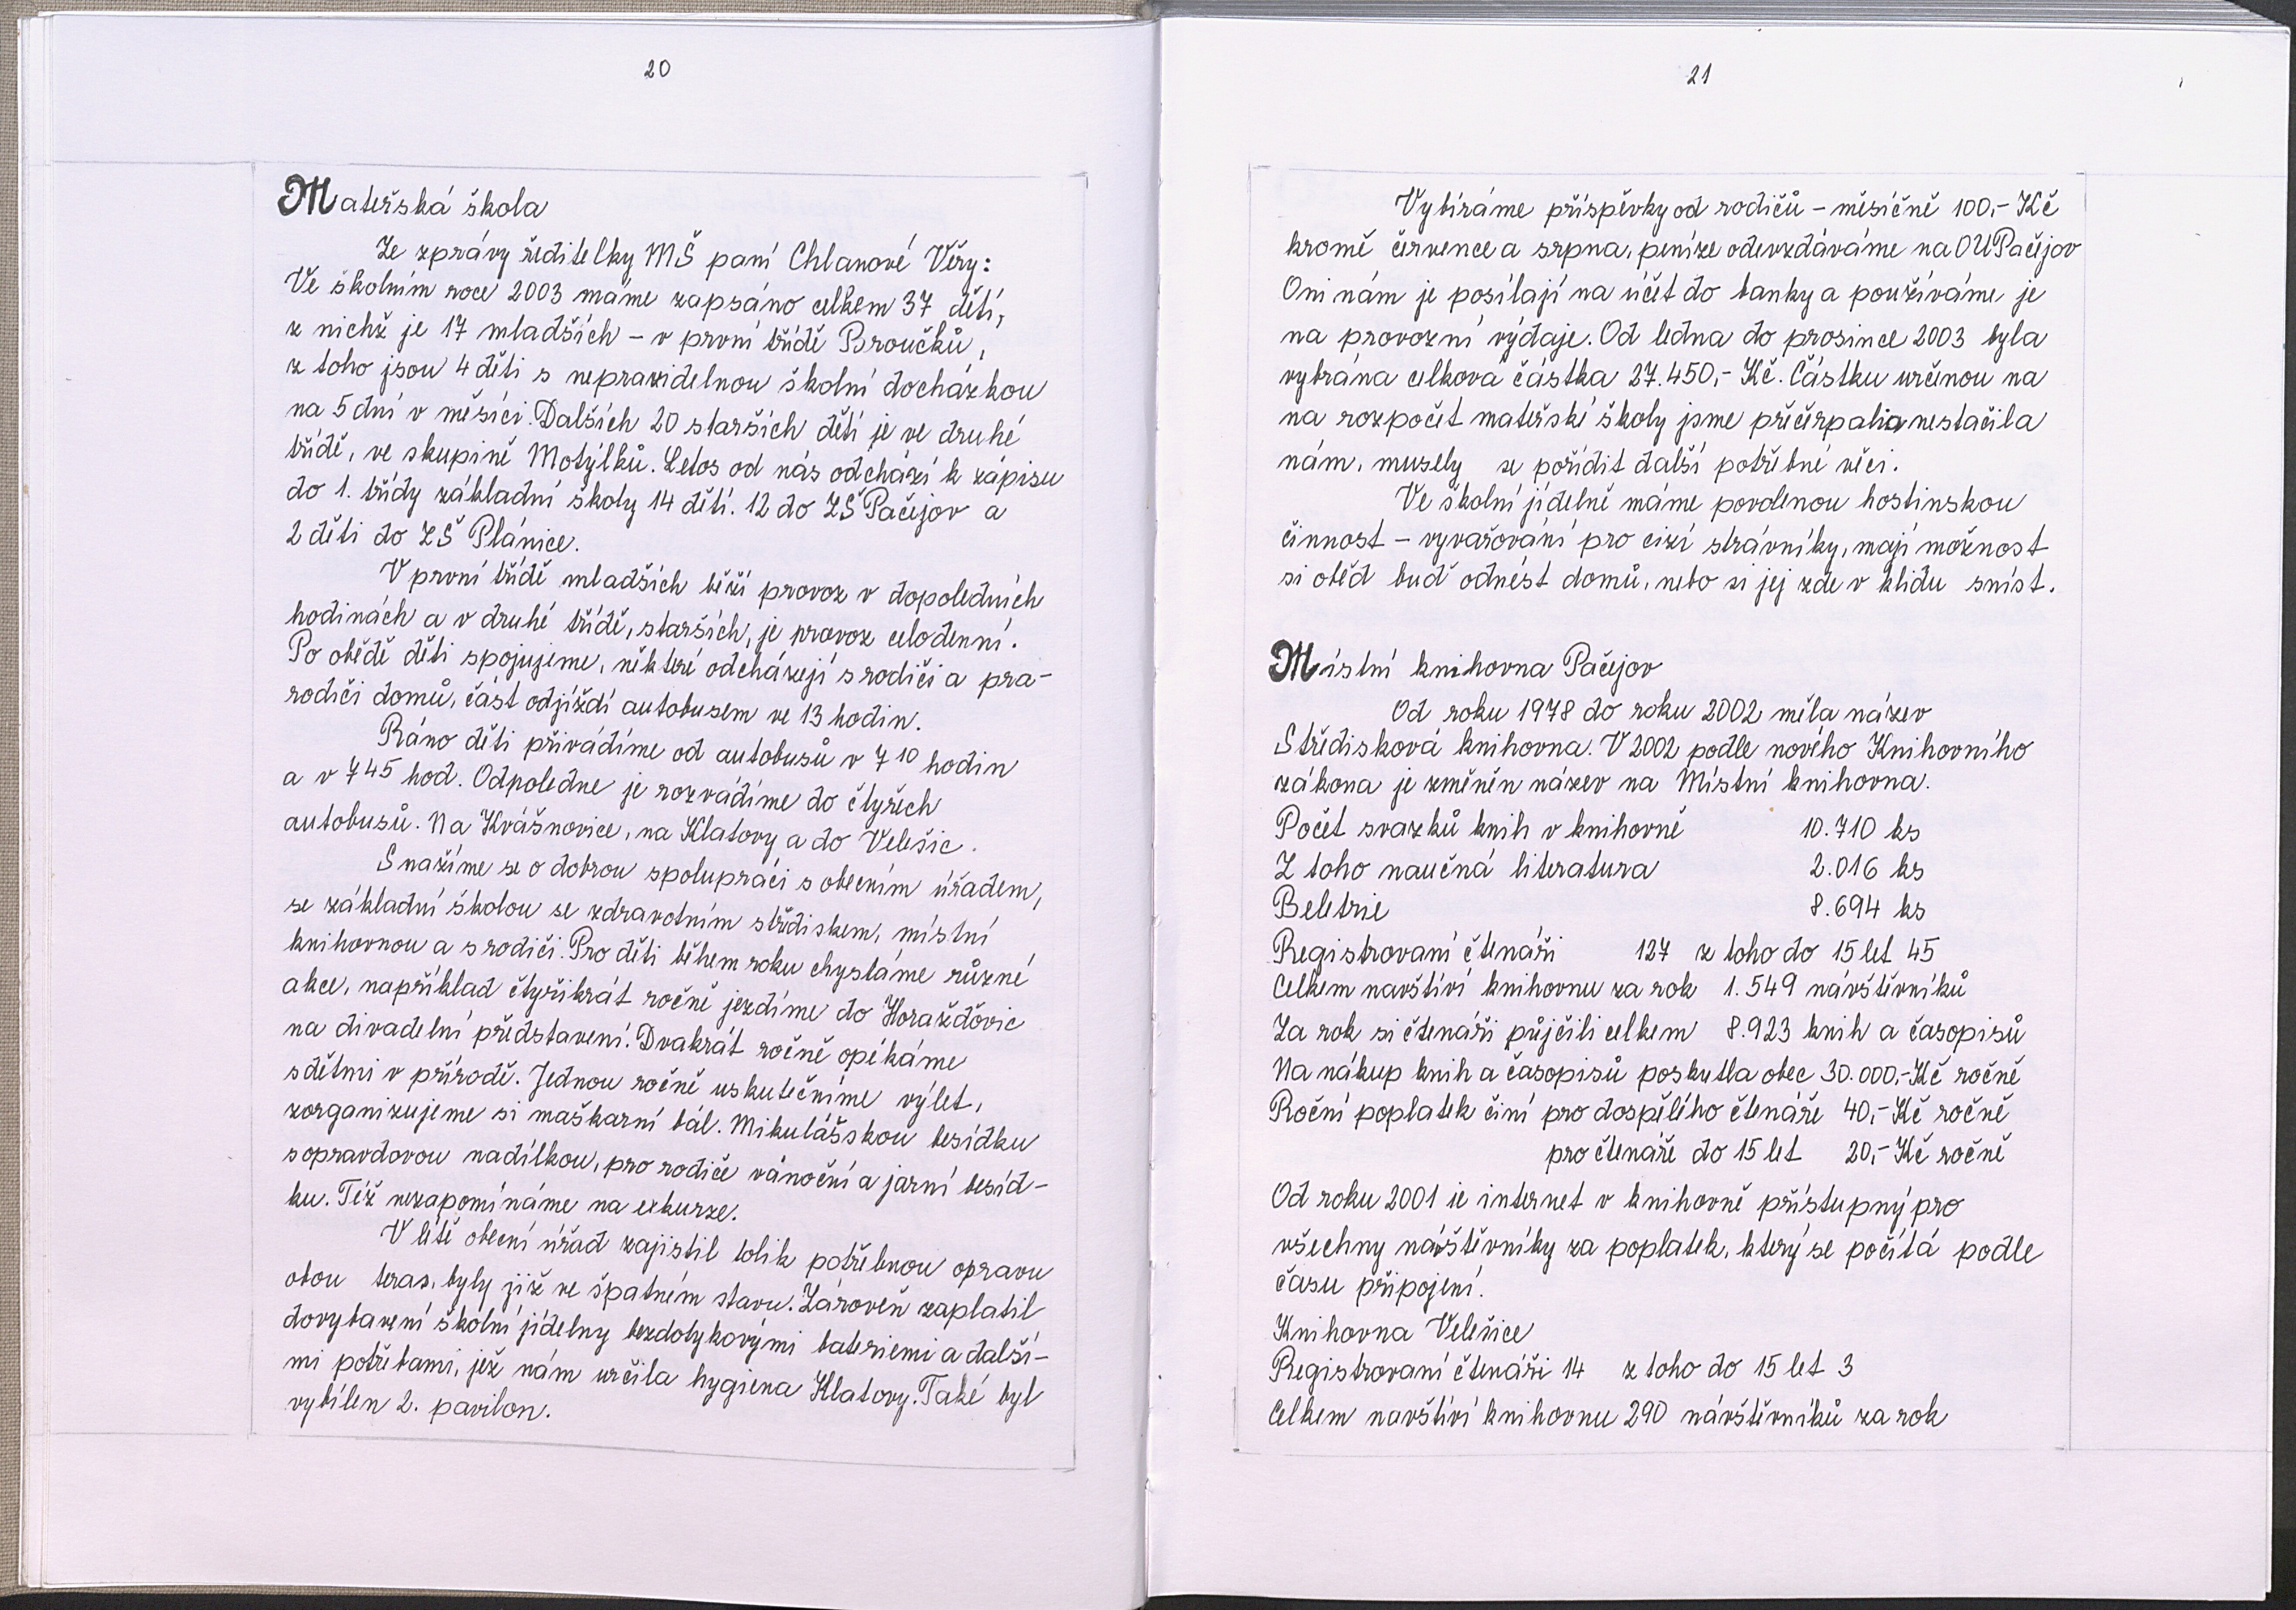 20
Mateřská škola
Ze zprávy ředitelky MŠ paní Chlanové Věry:
Ve školním roce 2003 máme zapsáno celkem 37 dětí,
z nichž je 17 mladších – v první třídě Broučků,
z toho jsou 4 děti s nepravidelnou školní docházkou
na 5 dní v měsíci. Dalších 20 starších dětí je ve druhé
třídě, ve skupině Motýlků. Letos od nás odchází k zápisu
do 1. třídy základní školy 14 dětí. 12 do ZŠ Pačejov a
2 děti do ZŠ Plánice.
V první třídě mladších běží provoz v dopoledních
hodinách a v druhé třídě, starších, je provoz celodenní.
Po obědě děti spojujeme, některé odcházejí s rodiči a pra-
rodiči domů, část odjíždí autobusem ve 13 hodin.
Ráno děti přivádíme od autobusů v 7 10 hodin
a v 7 45 hod. Odpoledne je rozvádíme do čtyřech
autobusů. Na Kvášňovice, na Klatovy a do Velešic.
Snažíme se o dobrou spolupráci s obecním úřadem,
se základní školou se zdravotním střediskem, místní
knihovnou a s rodiči. Pro děti během roku chystáme různé
akce, například čtyřikrát ročně jezdíme do Horažďovic
na divadelní představení. Dvakrát ročně opékáme
s dětmi v přírodě. Jednou ročně uskutečníme výlet,
zorganizujeme si maškarní bál. Mikulášskou besídku
s opravdovou nadílkou, pro rodiče vánoční a jarní besíd-
ku. Též nezapomínáme na exkurze.
V létě obecní úřad zajistil tolik potřebnou opravu
obou teras, byly již ve špatném stavu. Zároveň zaplatil
dovybavení školní jídelny bezdotykovými bateriemi a další-
mi potřebami, jež nám určila hygiena Klatovy. Také byl
vybílen 2. pavilon.
21
Vybíráme příspěvky od rodičů – měsíčně 100,- Kč
kromě července a srpna, peníze odevzdáváme na OU Pačejov
Oni nám je posílají na účet do banky a používáme je
na provozní výdaje. Od ledna do prosince 2003 byla
vybrána celková částka 27.450,- Kč. Částku určenou na
na rozpočet mateřské školy jsme přečerpali a nestačila
nám, musely se pořídit další potřebné věci.
Ve školní jídelně máme povolenou hostinskou
činnost – vyvařování pro cizí strávníky, mají možnost
si oběd buď odnést domů, nebo si jej zde v klidu sníst.
Místní knihovna Pačejov
Od roku 1978 do roku 2002 měla název
Středisková knihovna. V 2002 podle nového Knihovního
zákona je změněn název na Místní knihovna.
Počet svazků knih v knihovně 10.710 ks
Z toho naučná literatura 2.016 ks
Beletrie 8.694 ks
Registrovaní čtenáři 127 z toho do 15 let 45
Celkem navštíví knihovnu za rok 1.549 návštěvníků
Za rok si čtenáři půjčili celkem 8.923 knih a časopisů
Na nákup knih a časopisů poskytla obec 30.000,- Kč ročně
Roční poplatek činí pro dospělého čtenáře 40,- Kč ročně
pro čtenáře do 15 let 20,- Kč ročně
Od roku 2001 je internet v knihovně přístupný pro
všechny návštěvníky za poplatek, který se počítá podle
času připojení.
Knihovna Velešice
Registrovaní čtenáři 14 z toho do 15 let 3
Celkem navštíví knihovnu 290 návštěvníků za rok